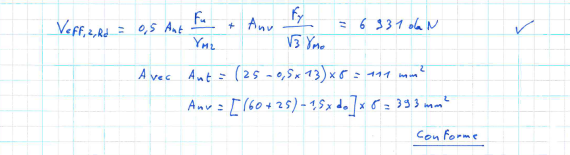 Veff,2,Rd = 0,5 Ant Fu / γM2 + Anv Fy / √3 γM0 = 6 931 daN ✓
Avec Ant = (25 - 0,5 x 13) x 6 = 111 mm²
Anv = [(60 + 25) - 1,5 x do] x 6 = 393 mm²
Conforme